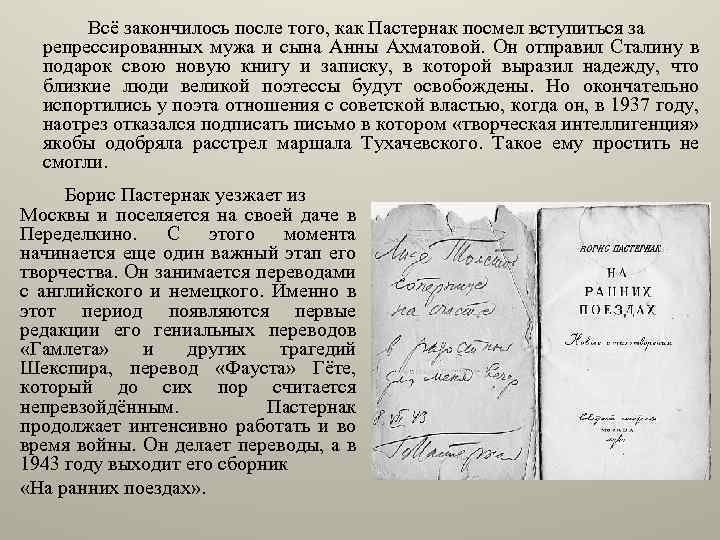 Всё закончилось после того, как Пастернак посмел вступиться за
репрессированных мужа и сына Анны Ахматовой. Он отправил Сталину в
подарок свою новую книгу и записку, в которой выразил надежду, что
близкие люди великой поэтессы будут освобождены. Но окончательно
испортились у поэта отношения с советской властью, когда он, в 1937 году,
наотрез отказался подписать письмо в котором «творческая интеллигенция»
якобы одобряла расстрел маршала Тухачевского. Такое ему простить не
смогли.
Борис Пастернак уезжает из
Москвы и поселяется на своей даче в
Переделкино. С этого момента
начинается еще один важный этап его
творчества. Он занимается переводами
с английского и немецкого. Именно в
этот период появляются первые
редакции его гениальных переводов
«Гамлета» и других трагедий
Шекспира, перевод «Фауста» Гёте,
который до сих пор считается
непревзойдённым. Пастернак
продолжает интенсивно работать и во
время войны. Он делает переводы, а в
1943 году выходит его сборник
«На ранних поездах».
на счастье
в радостный
для меня вечер
Б Пастернак
БОРИС ПАСТЕРНАК
НА
РАННИХ
ПОЕЗДАХ
Новые стихотворения
Советский писатель
МОСКВА
1943